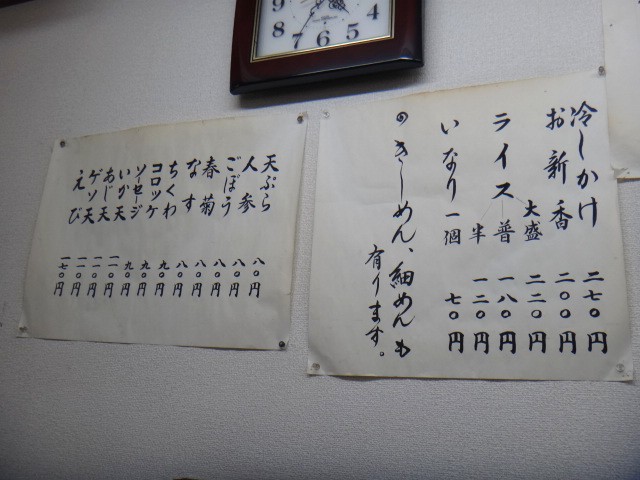 冷しかけ 二七〇円
お新香 二〇〇円
ライス 大盛 二二〇円
普 一八〇円
半 一二〇円
いなり一個 七〇円
きしめん、細めんも
有ります。
天ぷら 八〇円
人参 八〇円
ごぼう 八〇円
春菊 八〇円
なす 八〇円
ちくわ 九〇円
コロッケ 九〇円
ソーセージ 九〇円
いか天 一一〇円
あじ天 一一〇円
ゲソ天 一一〇円
えび 一七〇円